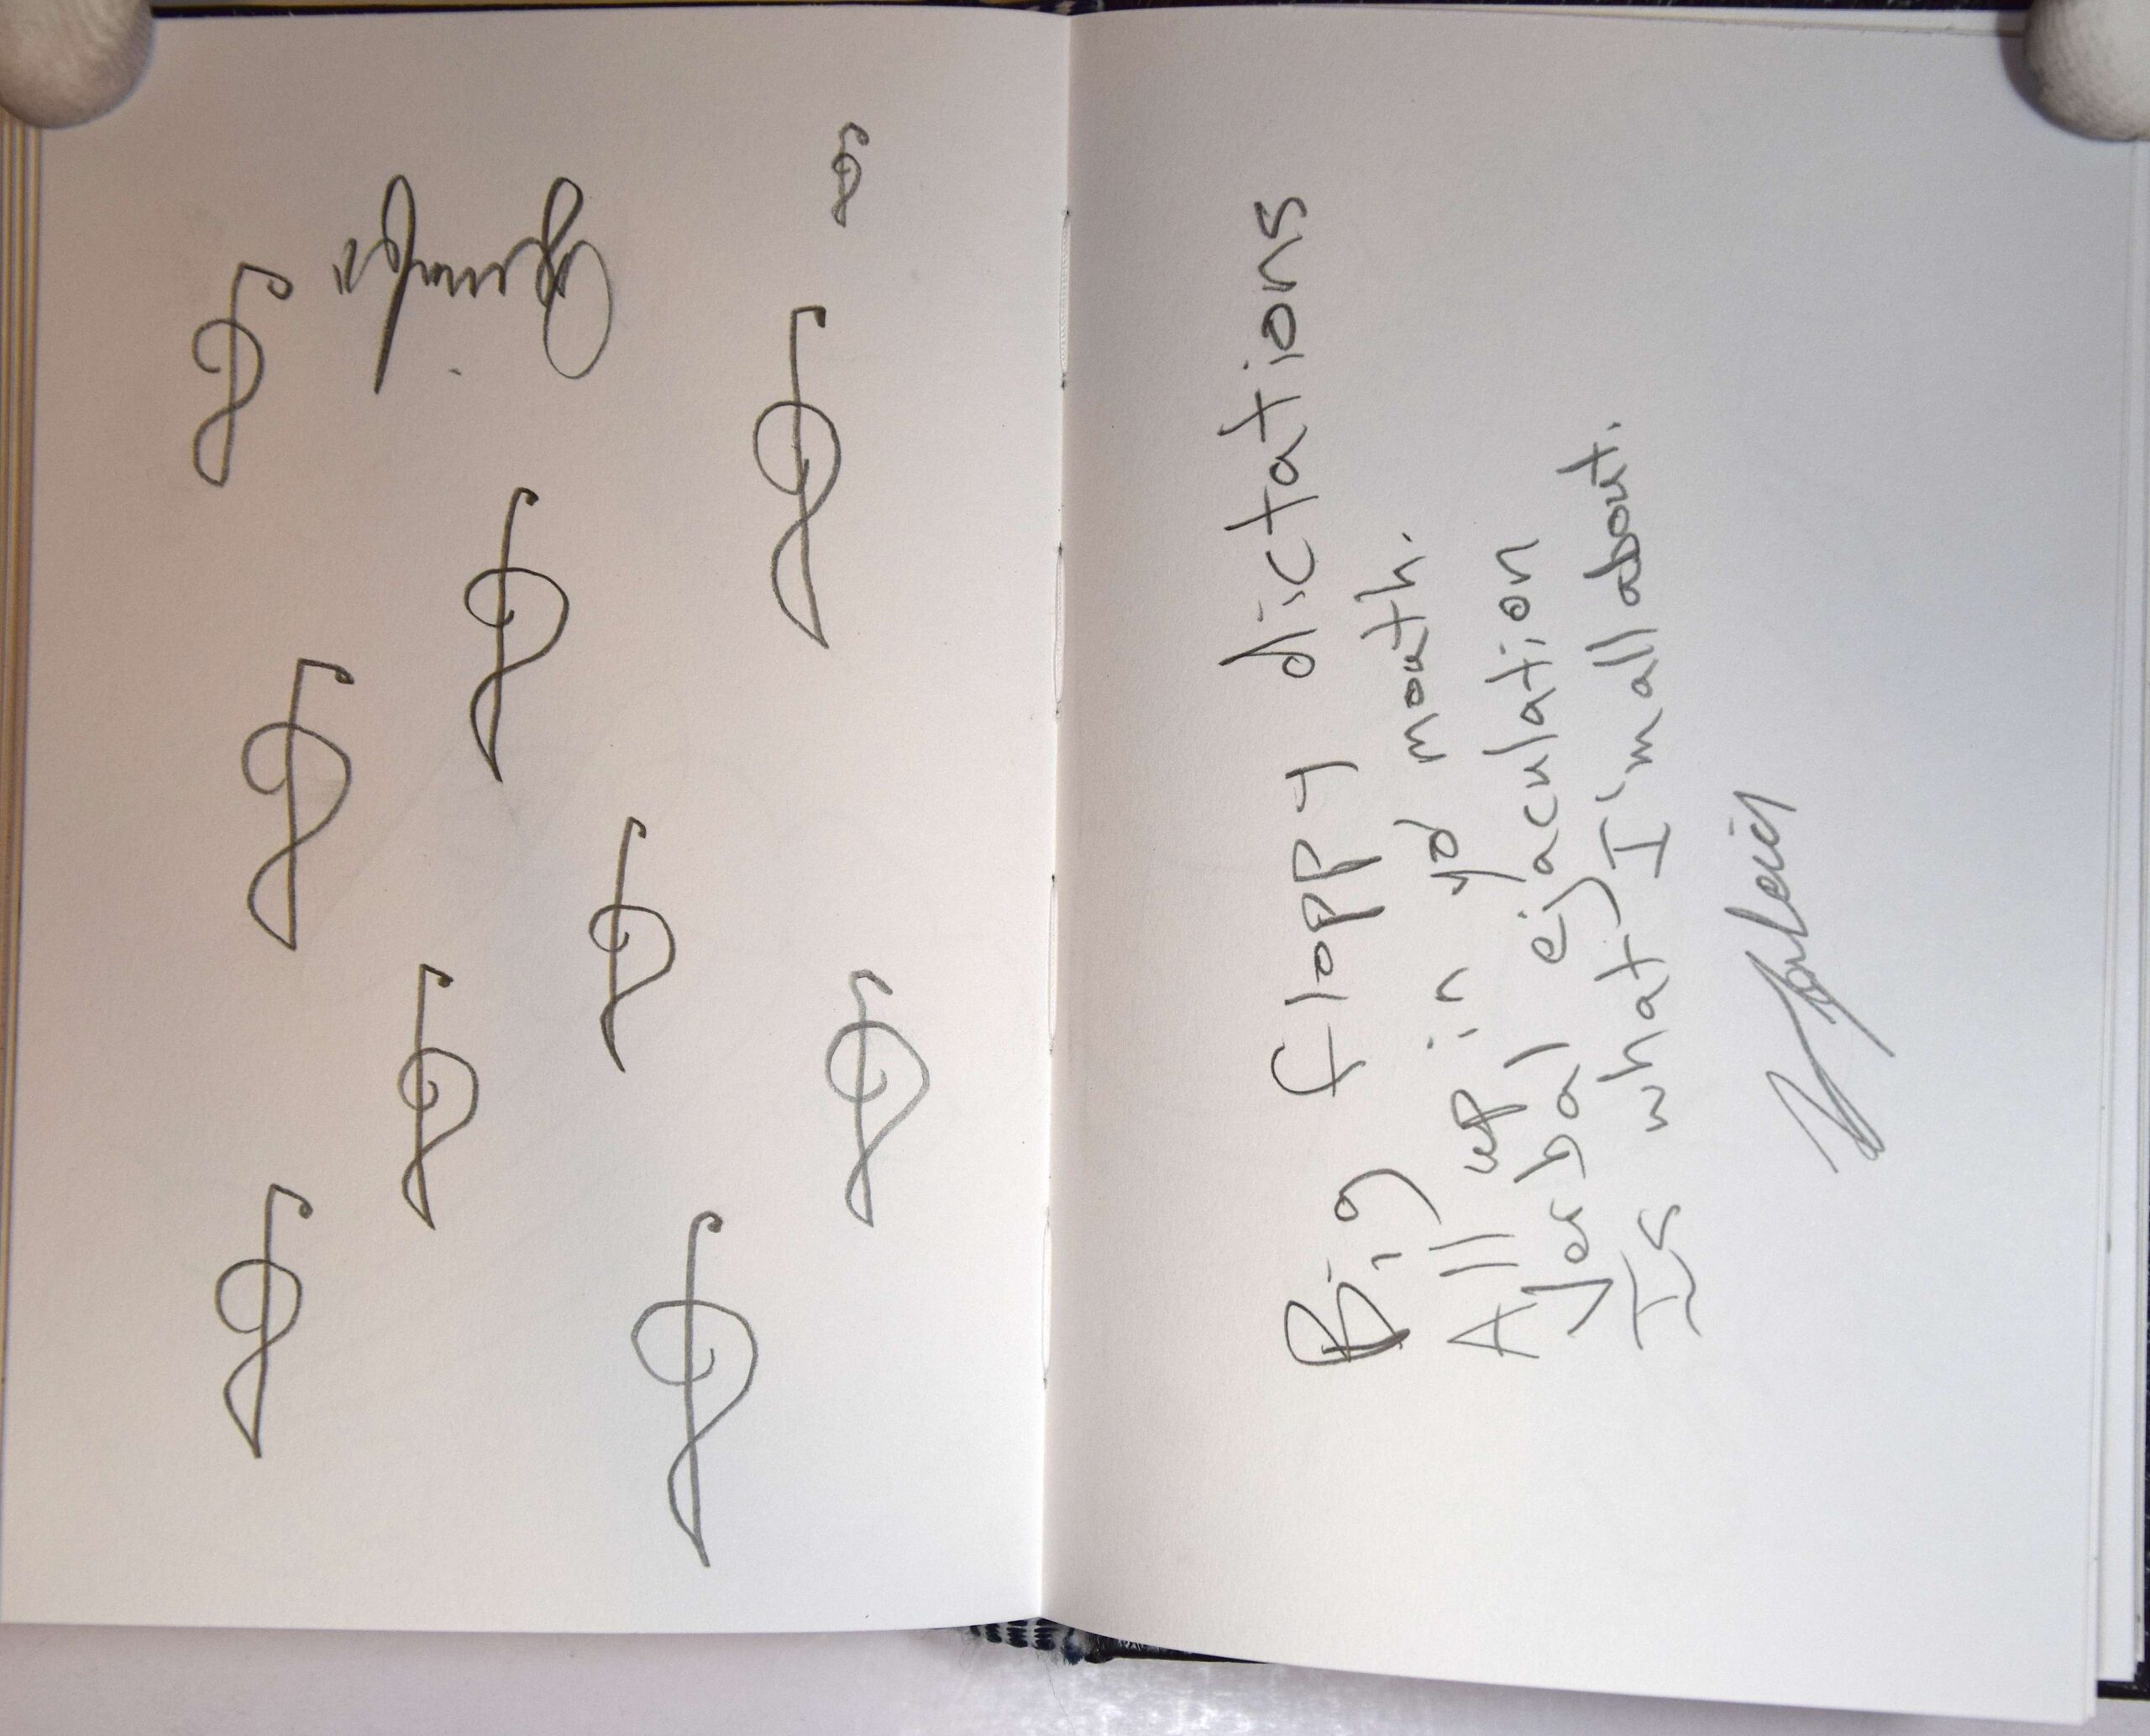 Big floppy dictations
All up in yo mouth.
Verbal ejaculation
Is what I'm all about.